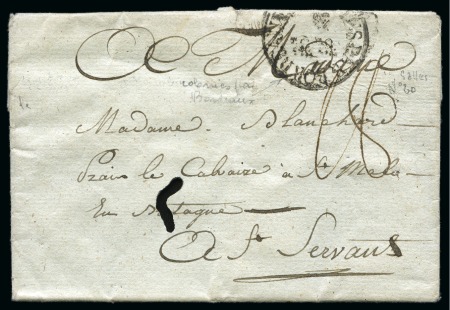 A M
colonies par
Bordeaux
Salles
N° 60
18
Madame Blanchard
le Calvaire à St Malo
En
A St Servans